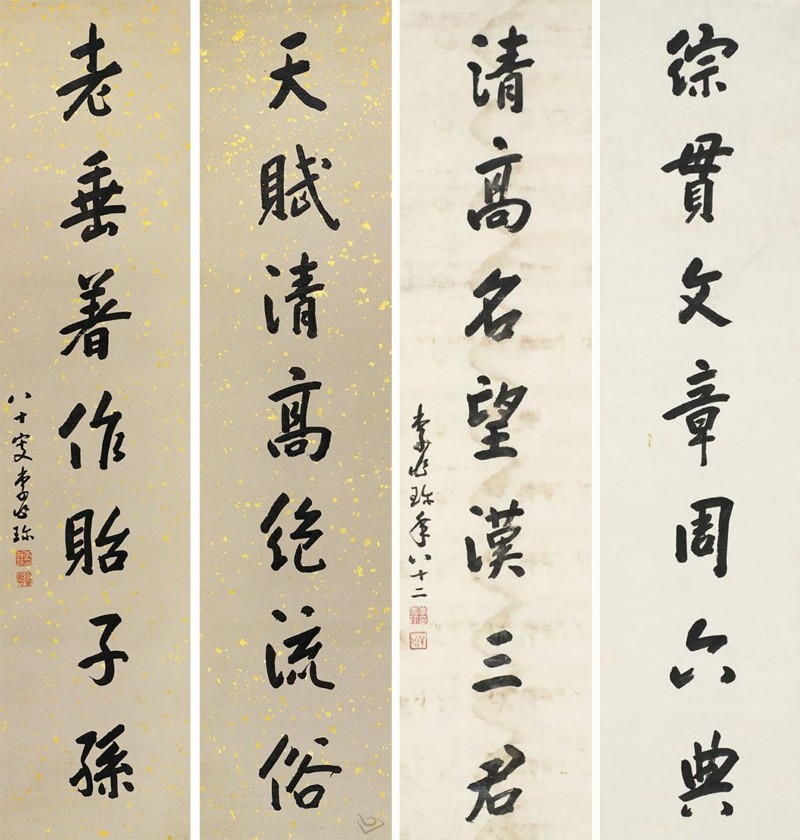 综貫文章周六典
清高名望漢三君
李作珍年八十二
天賦清高絕流俗
老垂著作貽子孫
八十叟李作珍